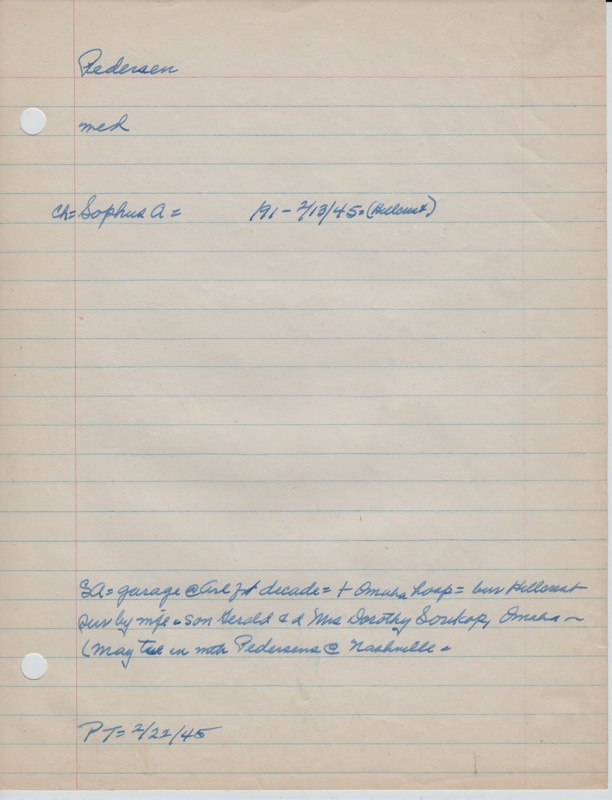 Pedersen
med
Ch= Sophus A =          191 - 2/13/45 = (Hillcrest)
SA = garage @ Arl for decade = + Omaha hosp = bur Hillcrest
sur by wife = son Gerald & d Mrs Dorothy Soukop, Omaha -
(May tie in with Pedersens @ Nashville -
PT = 2/22/45